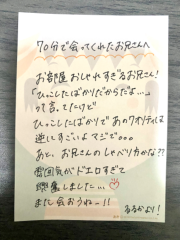 70分で会ってくれたお兄さんへ
お部屋おしゃれすぎるお兄さん!
「ひっこしたばかりだからだよ…」
って言ってたけど
ひっこしたばかりであのクオリティは
逆にすごいよマジで。。。
あと、お兄さんのしゃべりカかな??
雰囲気がドエロすぎて
興奮しました…♡
また会おうねー!!
るるかより!